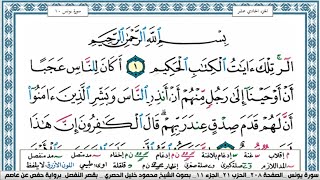 الجزء الحادي عشر
سورة يونس ١٠
بِسْمِ اللَّهِ الرَّحْمَٰنِ الرَّحِيمِ
الٓر ۚ تِلْكَ ءَايَٰتُ ٱلْكِتَٰبِ ٱلْحَكِيمِ ١ أَكَانَ لِلنَّاسِ عَجَبًا
أَنْ أَوْحَيْنَآ إِلَىٰ رَجُلٍ مِّنْهُمْ أَنْ أَنذِرِ ٱلنَّاسَ وَبَشِّرِ ٱلَّذِينَ ءَامَنُوٓا۟
أَنَّ لَهُمْ قَدَمَ صِدْقٍ عِندَ رَبِّهِمْ ۗ قَالَ ٱلْكَٰفِرُونَ إِنَّ هَٰذَا
سورة يونس الصفحة ٢٠٨ الآية ٢١ الجزء ١١ بصوت الشيخ محمود خليل الحصري بقصر المنفصل برواية حفص عن عاصم